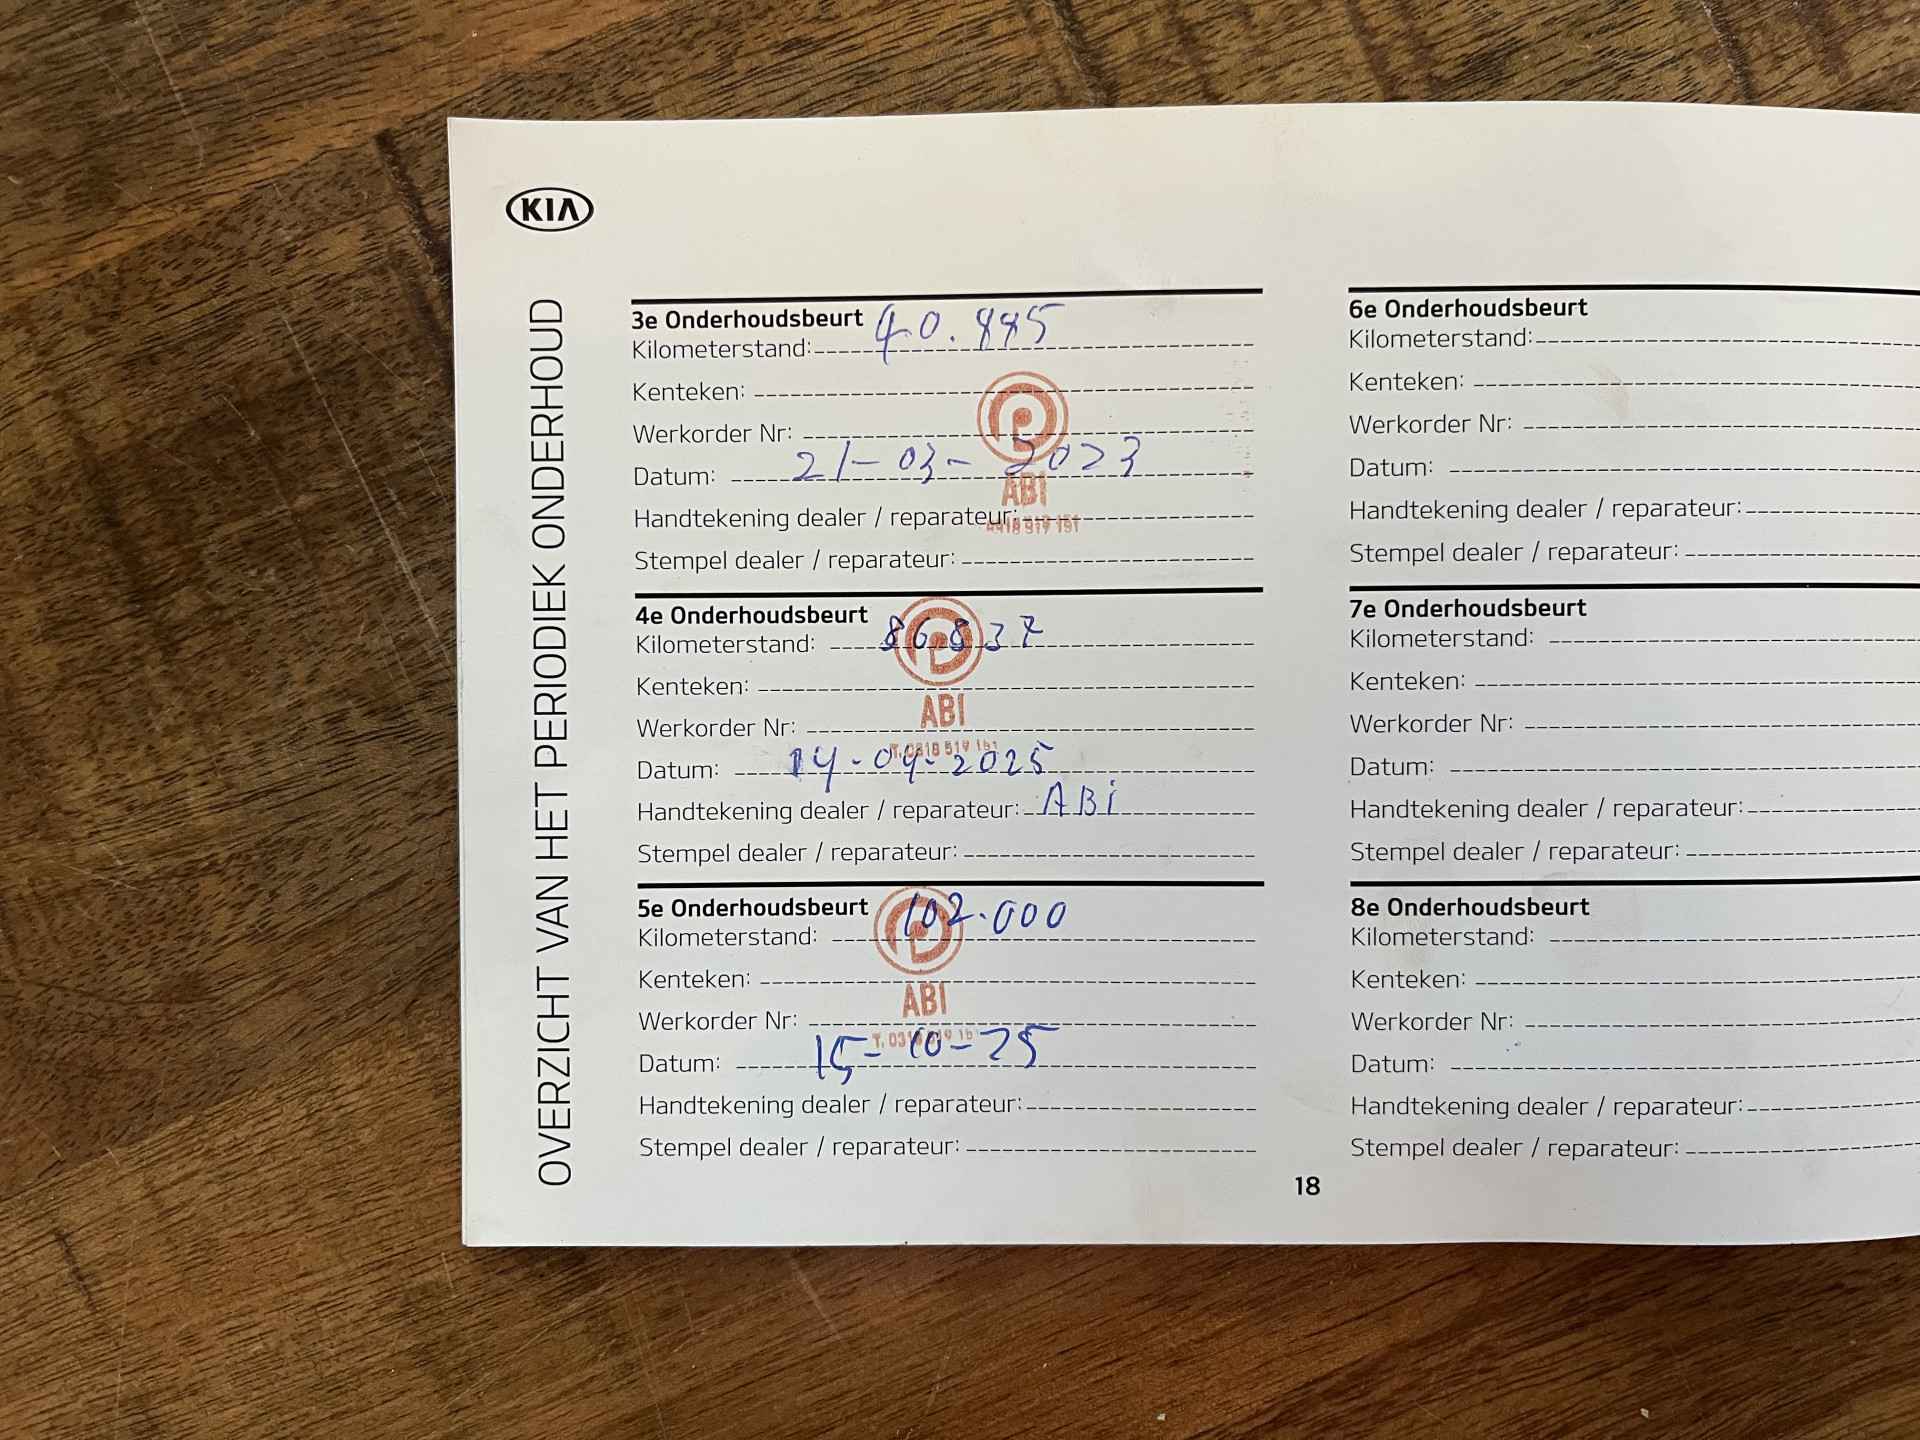 KIA
OVERZICHT VAN HET PERIODIEK ONDERHOUD
3e Onderhoudsbeurt
Kilometerstand: 40.885
Kenteken:
Werkorder Nr:
Datum: 21-03-2023
ABI
Handtekening dealer / reparateur:
Stempel dealer / reparateur:
4e Onderhoudsbeurt
Kilometerstand: 86837
Kenteken:
ABI
Werkorder Nr:
T. 0318 519 151
Datum: 14-04-2025
Handtekening dealer / reparateur: ABi
Stempel dealer / reparateur:
5e Onderhoudsbeurt
Kilometerstand: 102.000
Kenteken:
ABI
Werkorder Nr:
Datum: 15-10-25
Handtekening dealer / reparateur:
Stempel dealer / reparateur:
6e Onderhoudsbeurt
Kilometerstand:
Kenteken:
Werkorder Nr:
Datum:
Handtekening dealer / reparateur:
Stempel dealer / reparateur:
7e Onderhoudsbeurt
Kilometerstand:
Kenteken:
Werkorder Nr:
Datum:
Handtekening dealer / reparateur:
Stempel dealer / reparateur:
8e Onderhoudsbeurt
Kilometerstand:
Kenteken:
Werkorder Nr:
Datum:
Handtekening dealer / reparateur:
Stempel dealer / reparateur:
18